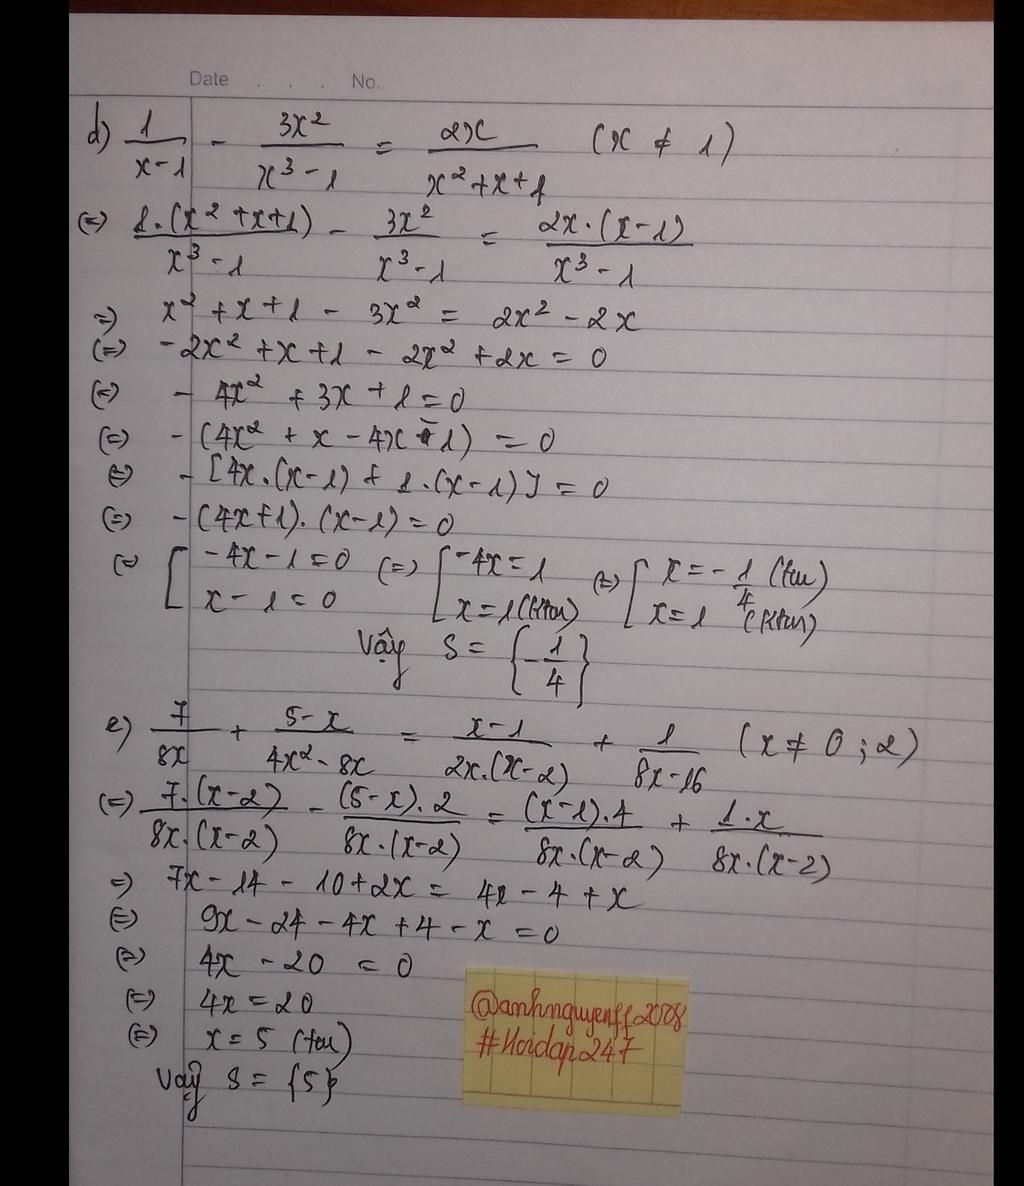 Date . . . No.
d) 1/(x-1) - 3x²/(x³-1) = 2x/(x²+x+1) (x ≠ 1)
(=) 1.(x²+x+1)/(x³-1) - 3x²/(x³-1) = 2x.(x-1)/(x³-1)
=) x²+x+1 - 3x² = 2x² - 2x
(=) -2x² +x+1 - 2x² +2x = 0
(=) - 4x² + 3x + 1 = 0
(=) - (4x² + x - 4x - 1) = 0
(=) - [4x.(x-1) + 1.(x-1)] = 0
(=) -(4x+1).(x-1) = 0
(=) [ -4x-1=0 ; x-1=0 (=) [ -4x=1 ; x=1 (ktm) (=) [ x=-1/4 (tm) ; x=1 (ktm)
Vậy S = {-1/4}
e) 7/8x + (5-x)/(4x²-8x) = (x-1)/(2x.(x-2)) + 1/(8x-16) (x ≠ 0 ; 2)
(=) 7.(x-2)/(8x.(x-2)) - (5-x).2/(8x.(x-2)) = (x-1).4/(8x.(x-2)) + 1.x/(8x.(x-2))
=) 7x - 14 - 10 + 2x = 4x - 4 + x
(=) 9x - 24 - 4x + 4 - x = 0
(=) 4x - 20 = 0
(=) 4x = 20
(=) x = 5 (tm)
Vậy S = {5}
@anhnguyenff2008
#Hoidap247